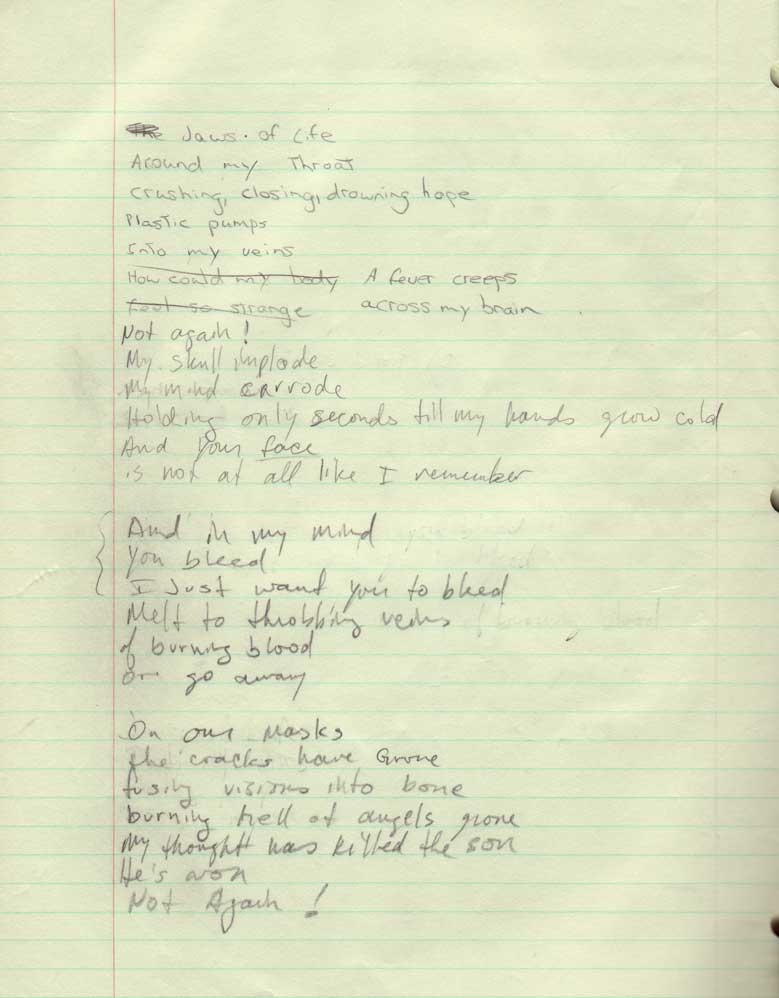 The Jaws. of Life
Around my Throat
crushing, closing, drowning hope
Plastic pumps
Into my veins
How could my body A fever creeps
feel so strange across my brain
Not again!
My skull implode
My mind corrode
Holding only seconds till my hands grow cold
And your face
is not at all like I remember
And in my mind
You bleed
I Just want you to bleed
Melt to throbbing veins
of burning blood
or go away
On our masks
the cracks have Grone
fusing visions into bone
burning hell of angels grone
My thought has killed the son
He's won
Not Again!